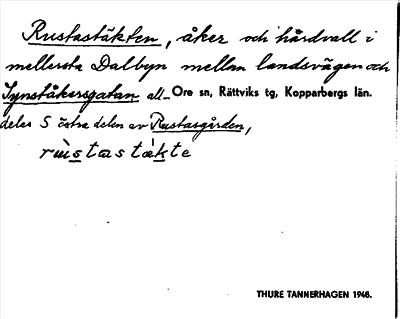 Rustastäkten, åker och hårdvall i
mellersta Dalbyn mellan landsvägen och
Synståkersgatan all- Ore sn, Rättviks tg, Kopparbergs län.
deles S östra delen av Rustasgården,
rùstastäkte
THURE TANNERHAGEN 1948.